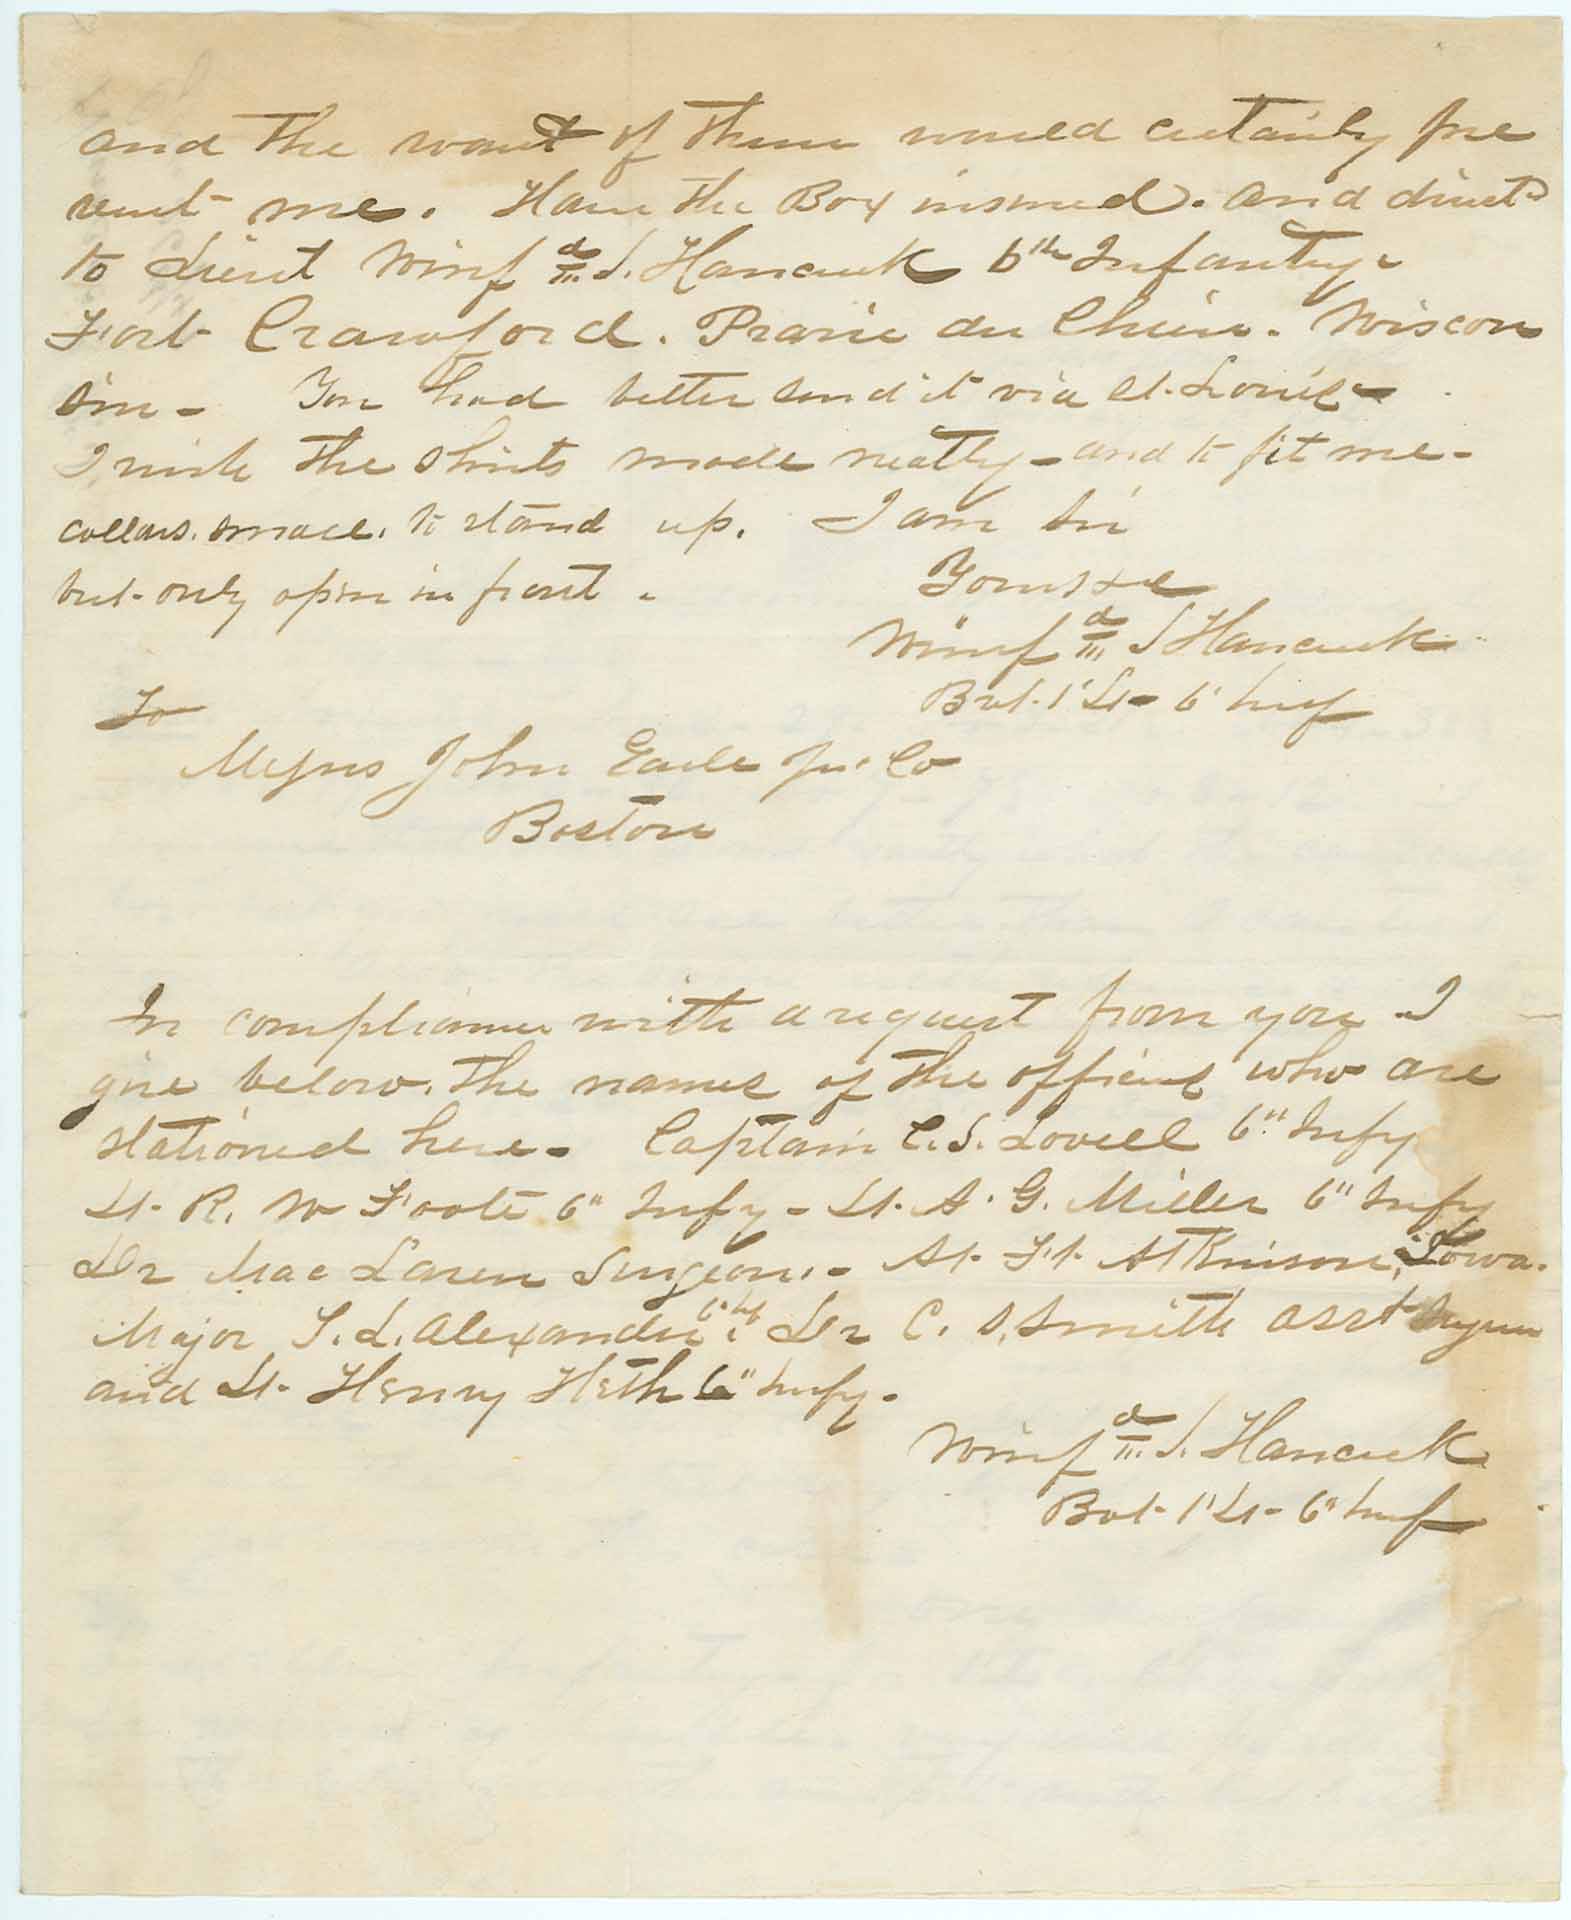 and the want of them would certainly pre
vent me. Have the Box insured. and direct
to Lieut Winf d III. S. Hancock 6th Infantry.
Fort Crawford. Prarie du Chien. Wiscon
sin - You had better send it via St. Louis -
I wish the shirts made neatly - and to fit me -
collars. small. to stand up. I am Sir
but only open in front. Yours &c
Winf d III S Hancock
Bvt. 1' Lt - 6' Inf
To
Messrs John Earle Jr. Co
Boston
In compliance with a request from you I
give below. the names of the officers who are
stationed here - Captain C. S. Lovell 6" Infy
Lt. R. W Foote 6" Infy - Lt. A. G. Miller 6" Infy
Dr Mac Laren Surgeon. - At Ft. Atkinson, Iowa.
Major T. L. Alexander 6" Inf. Dr C. S. Smith asst Surgeon
and Lt. Henry Heth 6" Infy -
Winf d III. S. Hancock
Bvt - 1' Lt - 6" Inf